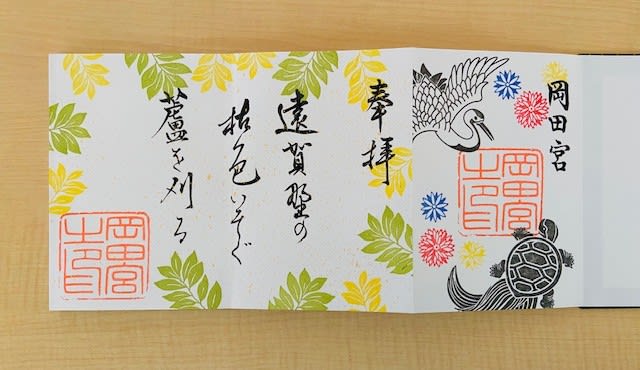 岡田宮
岡田宮
之印
奉拝
遠賀野の
枯色いそぐ
蘆を刈る
岡田宮
之印